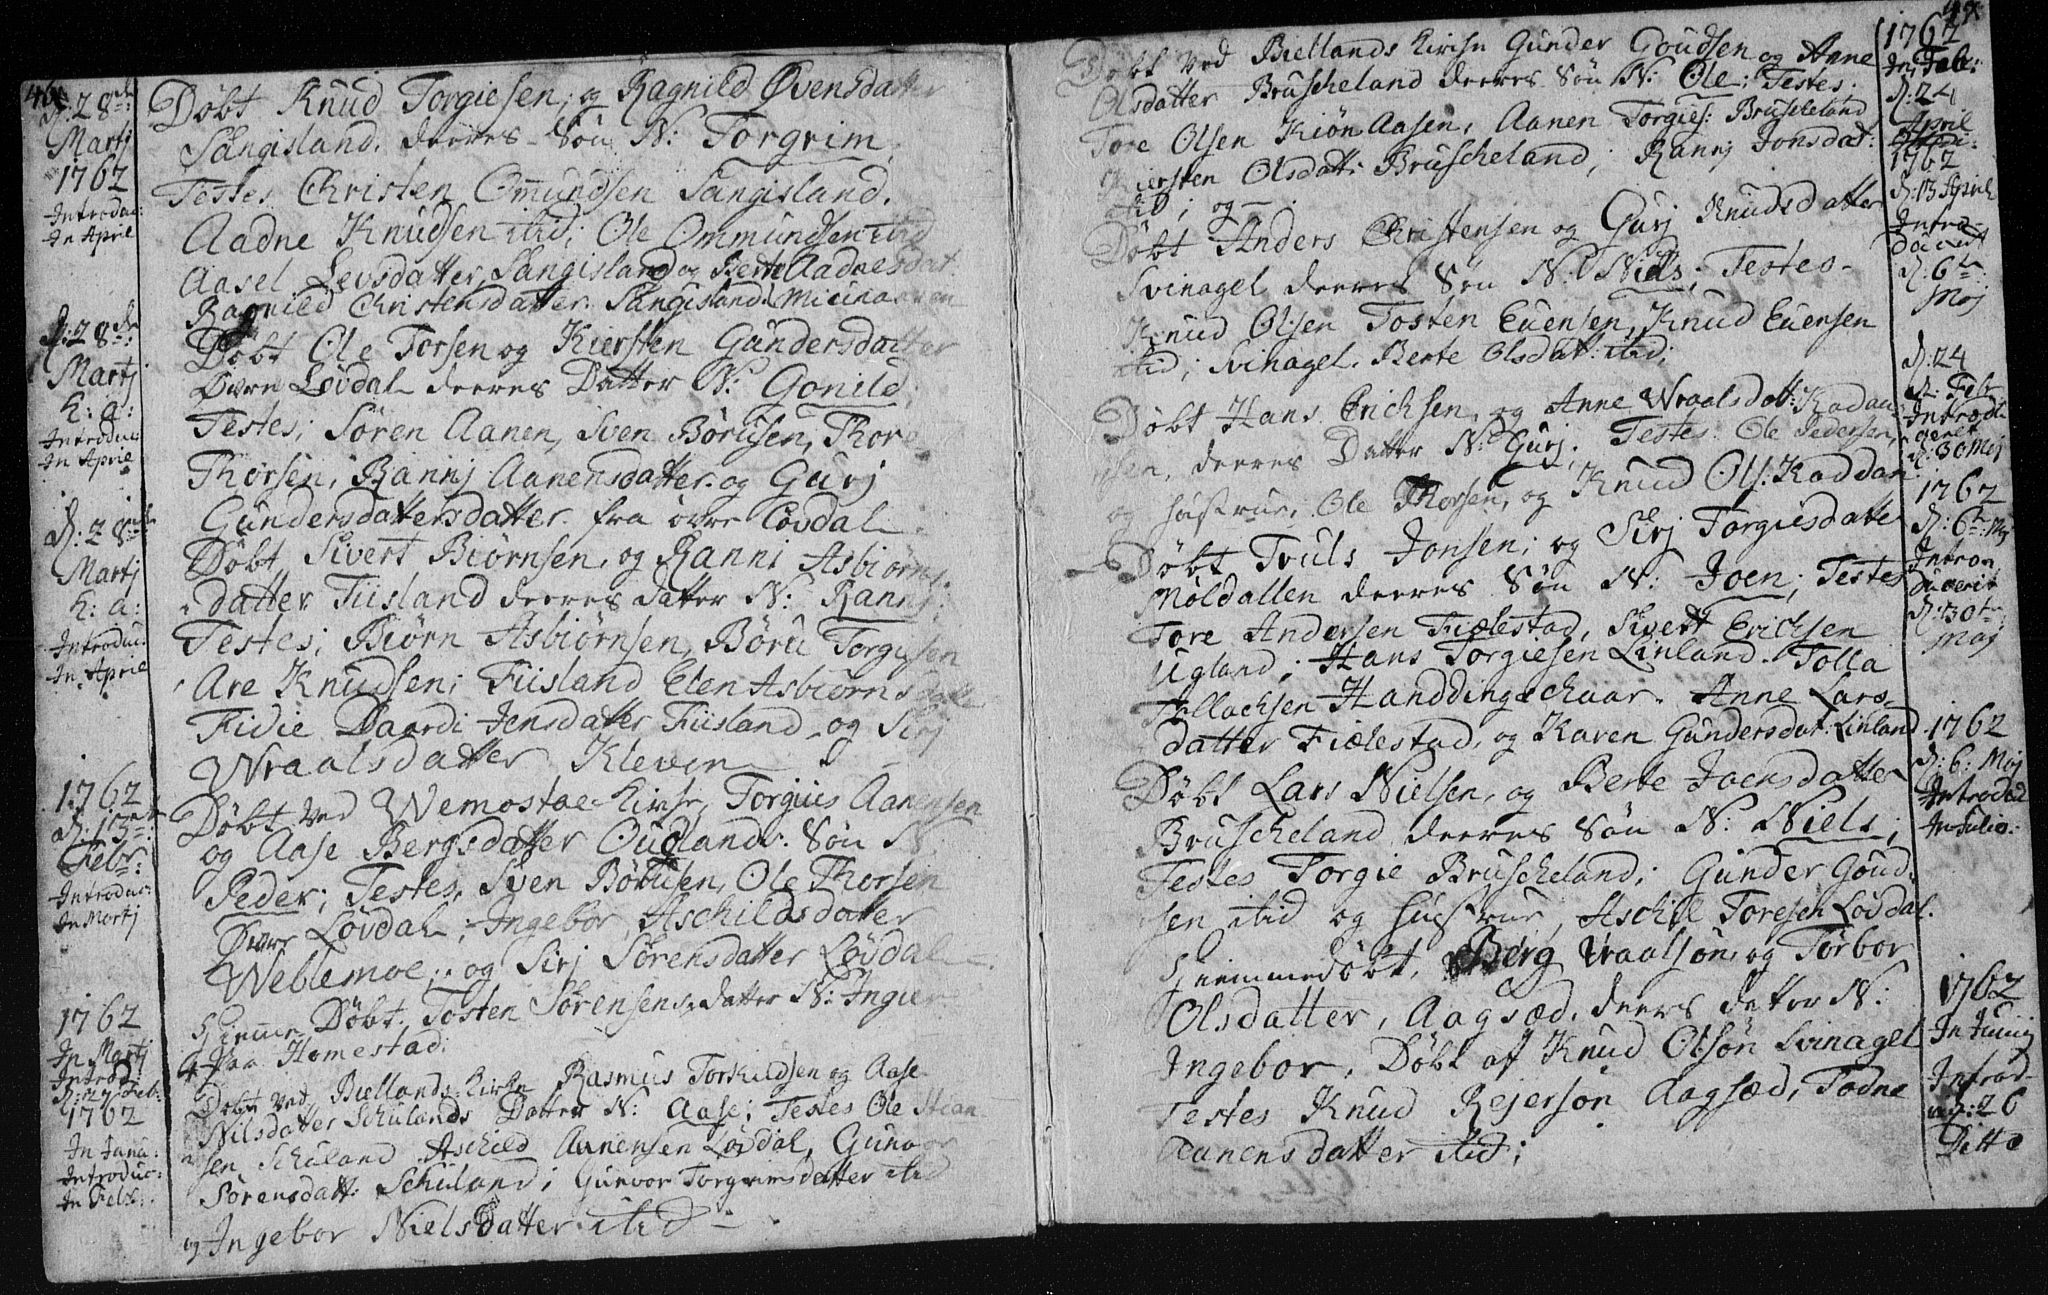 46
d: 28de
Martj
1762
Introduc:
In April
Døbt Knud Torgiesen; og Ragnild Øvensdatter
Sangisland. deeres Søn N: Torgrim.
Testes Christen Omundsen Sangisland.
Aadne Knudsen itid; Ole Ommundsen itid
Aasel Levsdatter, Sangisland og Berte Aadnesdat
Ragnild Christensdatter. Sangisland
d: 28de
Martj
h: a:
Introduc:
In April
Døbt Ole Torsen og Kiersten Gundersdatter
Øvre Løvdal deeres Datter N: Gonild;
Testes; Søren Aanen, Sven Børusen, Thor
Thorsen; Rannj Aanensdatter og Gurj
Gundersdattersdatter fra øvre Løvdal
d: 28de
Martj
h: a:
Introduc:
In April
Døbt Sivert Biørnsen, og Ranni Asbiørns
datter Fiisland deeres datter N: Rannj:
Testes; Biørn Asbiørnsen, Børu Torgusen
Are Knudsen; Fiisland Elen Asbiørnsdatt
Fidie Daardi Jensdatter Fiisland og Sirj
Wraalsdatter Kleven
1762
d: 13de
Febr:
Introduc:
In Martj
Døbt ved Wemostae Kirke, Torgius Aanensen
og Aase Bergsdatter Oudlands Søn N.
Peder; Testes. Sven Børusen, Ole Thorsen
Øvre Løvdal; Ingebor Aschildsdatter
Weblemoe; og Sirj Sørensdatter Løvdal
1762
In Martj
Introd:
d: 27 Feb:
Hiemme Døbt. Tosten Sørensens datter N: Ingier
paa Homestad;
1762
In Janu:
Introduc:
In Febr:
Døbt ved Biellands Kirke Rasmus Torkildsen og Aase
Nilsdatter Schulands Datter N: Aase; Testes Ole Stian
sen Schuland Aschild Aanensen Løvdal, Gunvor
Sørensdatt: Schuland; Gunvor Torgrimsdatter itid
og Ingebor Nielsdatter itid
47
1762
In Febr:
d: 24
April
1762
Døbt ved Biellands Kirke Gunder Goudsen og Anne
Olsdatter Bruscheland deeres Søn N: Ole; Testes.
Tore Olsen Kiøn Aasen, Aanen Torgies: Bruscheland
Kiersten Olsdatt: Bruscheland; Rannj Jonsdat:
itid; og
d: 13 April
Intro
d: 6te
Maj
Døbt Anders Christensen og Gurj Knudsdatter
Svinagel deeres Søn N: Niels; Testes
Knud Olsen Tosten Evensen, Knud Evensen
itid; Svinagel. Berte Olsdat: itid;
d: 24
d: Febr
Introd
d: 30 Mej
Døbt Hans Erichsen og Anne Wraalsdatt: Kadan
sen, deeres Datter N: Gurj; Testes Ole Pedersen,
og hustrue; Ole Thorsen, og Knud Ols: Kaddan
1762
d: 6te Maj
Intron
ducerit
d: 30te
Maj
Døbt Truls Jonsen; og Sirj Torgiusdatte
Moldallen deeres Søn N: Joen; Testes
Tore Andersen Fiælestad, Sivert Erichsen
Ugland; Hans Torgiesen Linland. Tolla
Tollachsen Handdingschaar. Anne Lars
datter Fiælestad, og Karen Gundersdat: Linland
1762
d: 6: Maj
Introdud
In Julio:
Døbt Lars Nielsen, og Berte Joensdatter
Bruscheland deeres Søn N: Niels;
Testes Torgie Bruscheland; Gunder Goud
sen itid og hustrue, Aschil Toresen Løvdal.
1762
In Junij
Introd
26
Ditto
Hiemmedøbt, Berg Wraalsøn og Torbor
Olsdatter, Aagsæd, deers datter N:
Ingebor, Døbt af Knud Olsøn Svinagel
Testes Knud Rejersøn Aagsæd, Todne
Aanensdatter itid;